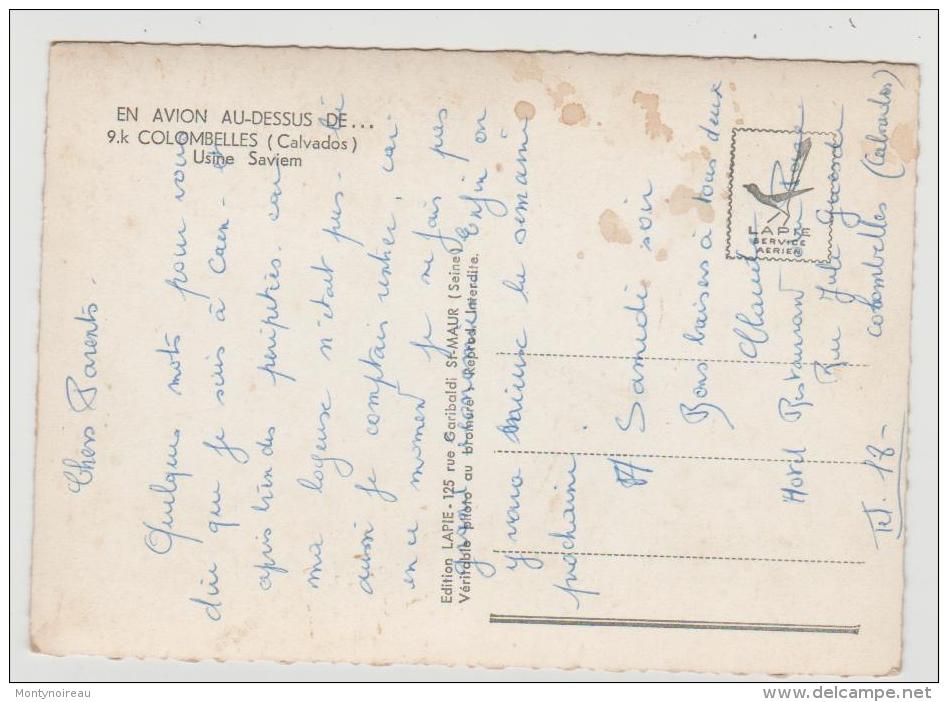 EN AVION AU-DESSUS DE...
9.k COLOMBELLES (Calvados)
Usine Saviem
LAPIE
SERVICE
AERIEN
Edition LAPIE - 125 rue Garibaldi St-MAUR (Seine)
Véritable photo au bromure - Reprod. Interdite.
Chers Parents.
Quelques mots pour vous
dire que je suis à Caen - et
après bien des péripéties. car
ma logeuse n'était pas - là
aussi je comptais rester, car
en ce moment je ne fais pas
Enfin on
y vera mieux la semaine
prochaine
Samedi soir
Bons baisers à tous deux
Claude
Hotel Restaurant
Rue Jules Guesde
Colombelles (Calvados)
Tel. 18 -
Montynoireau
www.delcampe.net